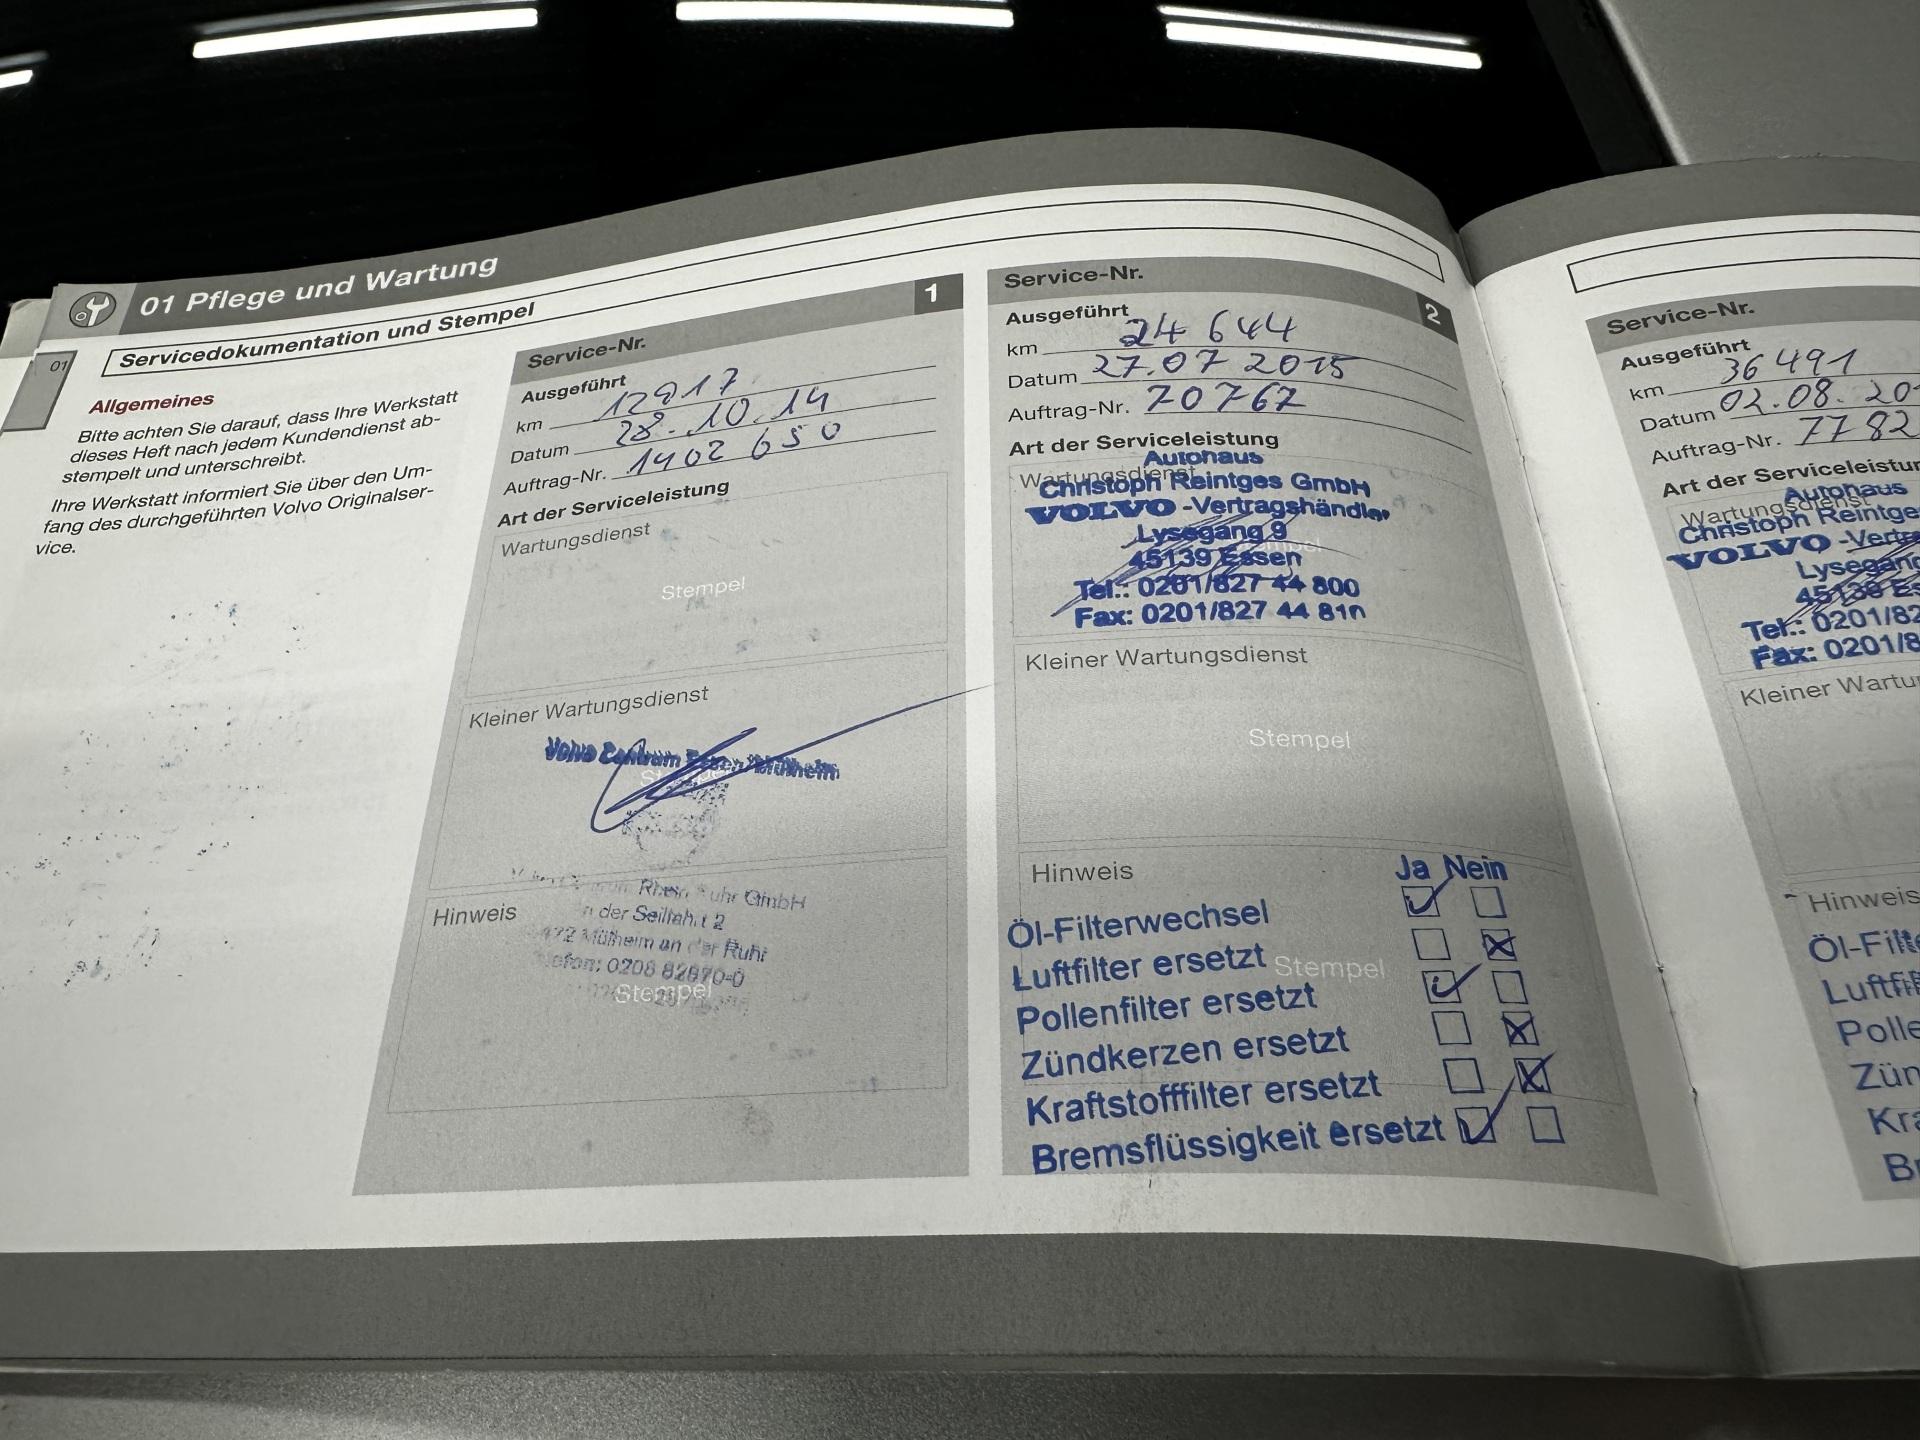 01 Pflege und Wartung
Servicedokumentation und Stempel
01
Allgemeines
Bitte achten Sie darauf, dass Ihre Werkstatt
dieses Heft nach jedem Kundendienst ab-
stempelt und unterschreibt.
Ihre Werkstatt informiert Sie über den Um-
fang des durchgeführten Volvo Originalser-
vice.
Service-Nr. 1
Ausgeführt
km 12817
Datum 28.10.14
Auftrag-Nr. 1402 650
Art der Serviceleistung
Wartungsdienst
Stempel
Kleiner Wartungsdienst
Volvo Centrum Essen/Mülheim
Stempel
Rhein Ruhr GmbH
Hinweis
der Seilfahrt 2
Mülheim an der Ruhr
0208 82870-0
Stempel
Service-Nr. 2
Ausgeführt
km 24 644
Datum 27.07 2015
Auftrag-Nr. 70767
Art der Serviceleistung
Wartungsdienst
Autohaus
Christoph Reintges GmbH
VOLVO -Vertragshändler
Lysegang 9
45139 Essen
Tel.: 0201/827 44 800
Fax: 0201/827 44 810
Kleiner Wartungsdienst
Stempel
Hinweis
Ja Nein
Öl-Filterwechsel
Luftfilter ersetzt
Stempel
Pollenfilter ersetzt
Zündkerzen ersetzt
Kraftstofffilter ersetzt
Bremsflüssigkeit ersetzt
Service-Nr.
Ausgeführt
km 36491
Datum 02.08.20
Auftrag-Nr. 7782
Art der Serviceleistun
Wartungsdienst
Autohaus
Christoph Reintge
VOLVO -Vertra
Lysegang
45139 Es
Tel.: 0201/82
Fax: 0201/8
Kleiner Wartu
Hinweis
Öl-Filte
Luftfil
Polle
Zün
Kra
Br